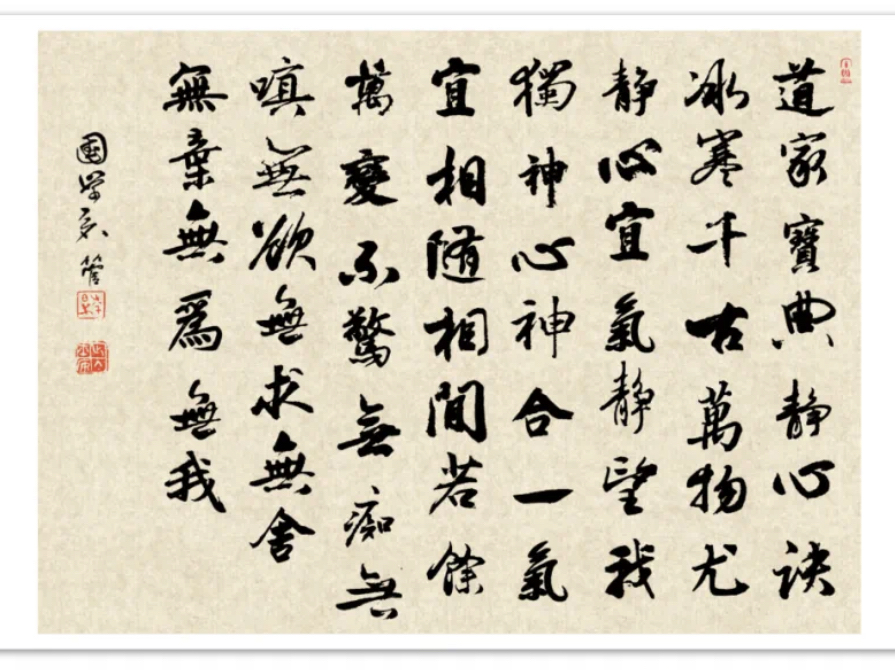 道家寶典静心诀
冰寒千古萬物尤
静心宜氣静望我
獨神心神合一氣
宜相随相間若餘
萬變不驚無痴無
嗔無欲無求無舍
無棄無爲無我